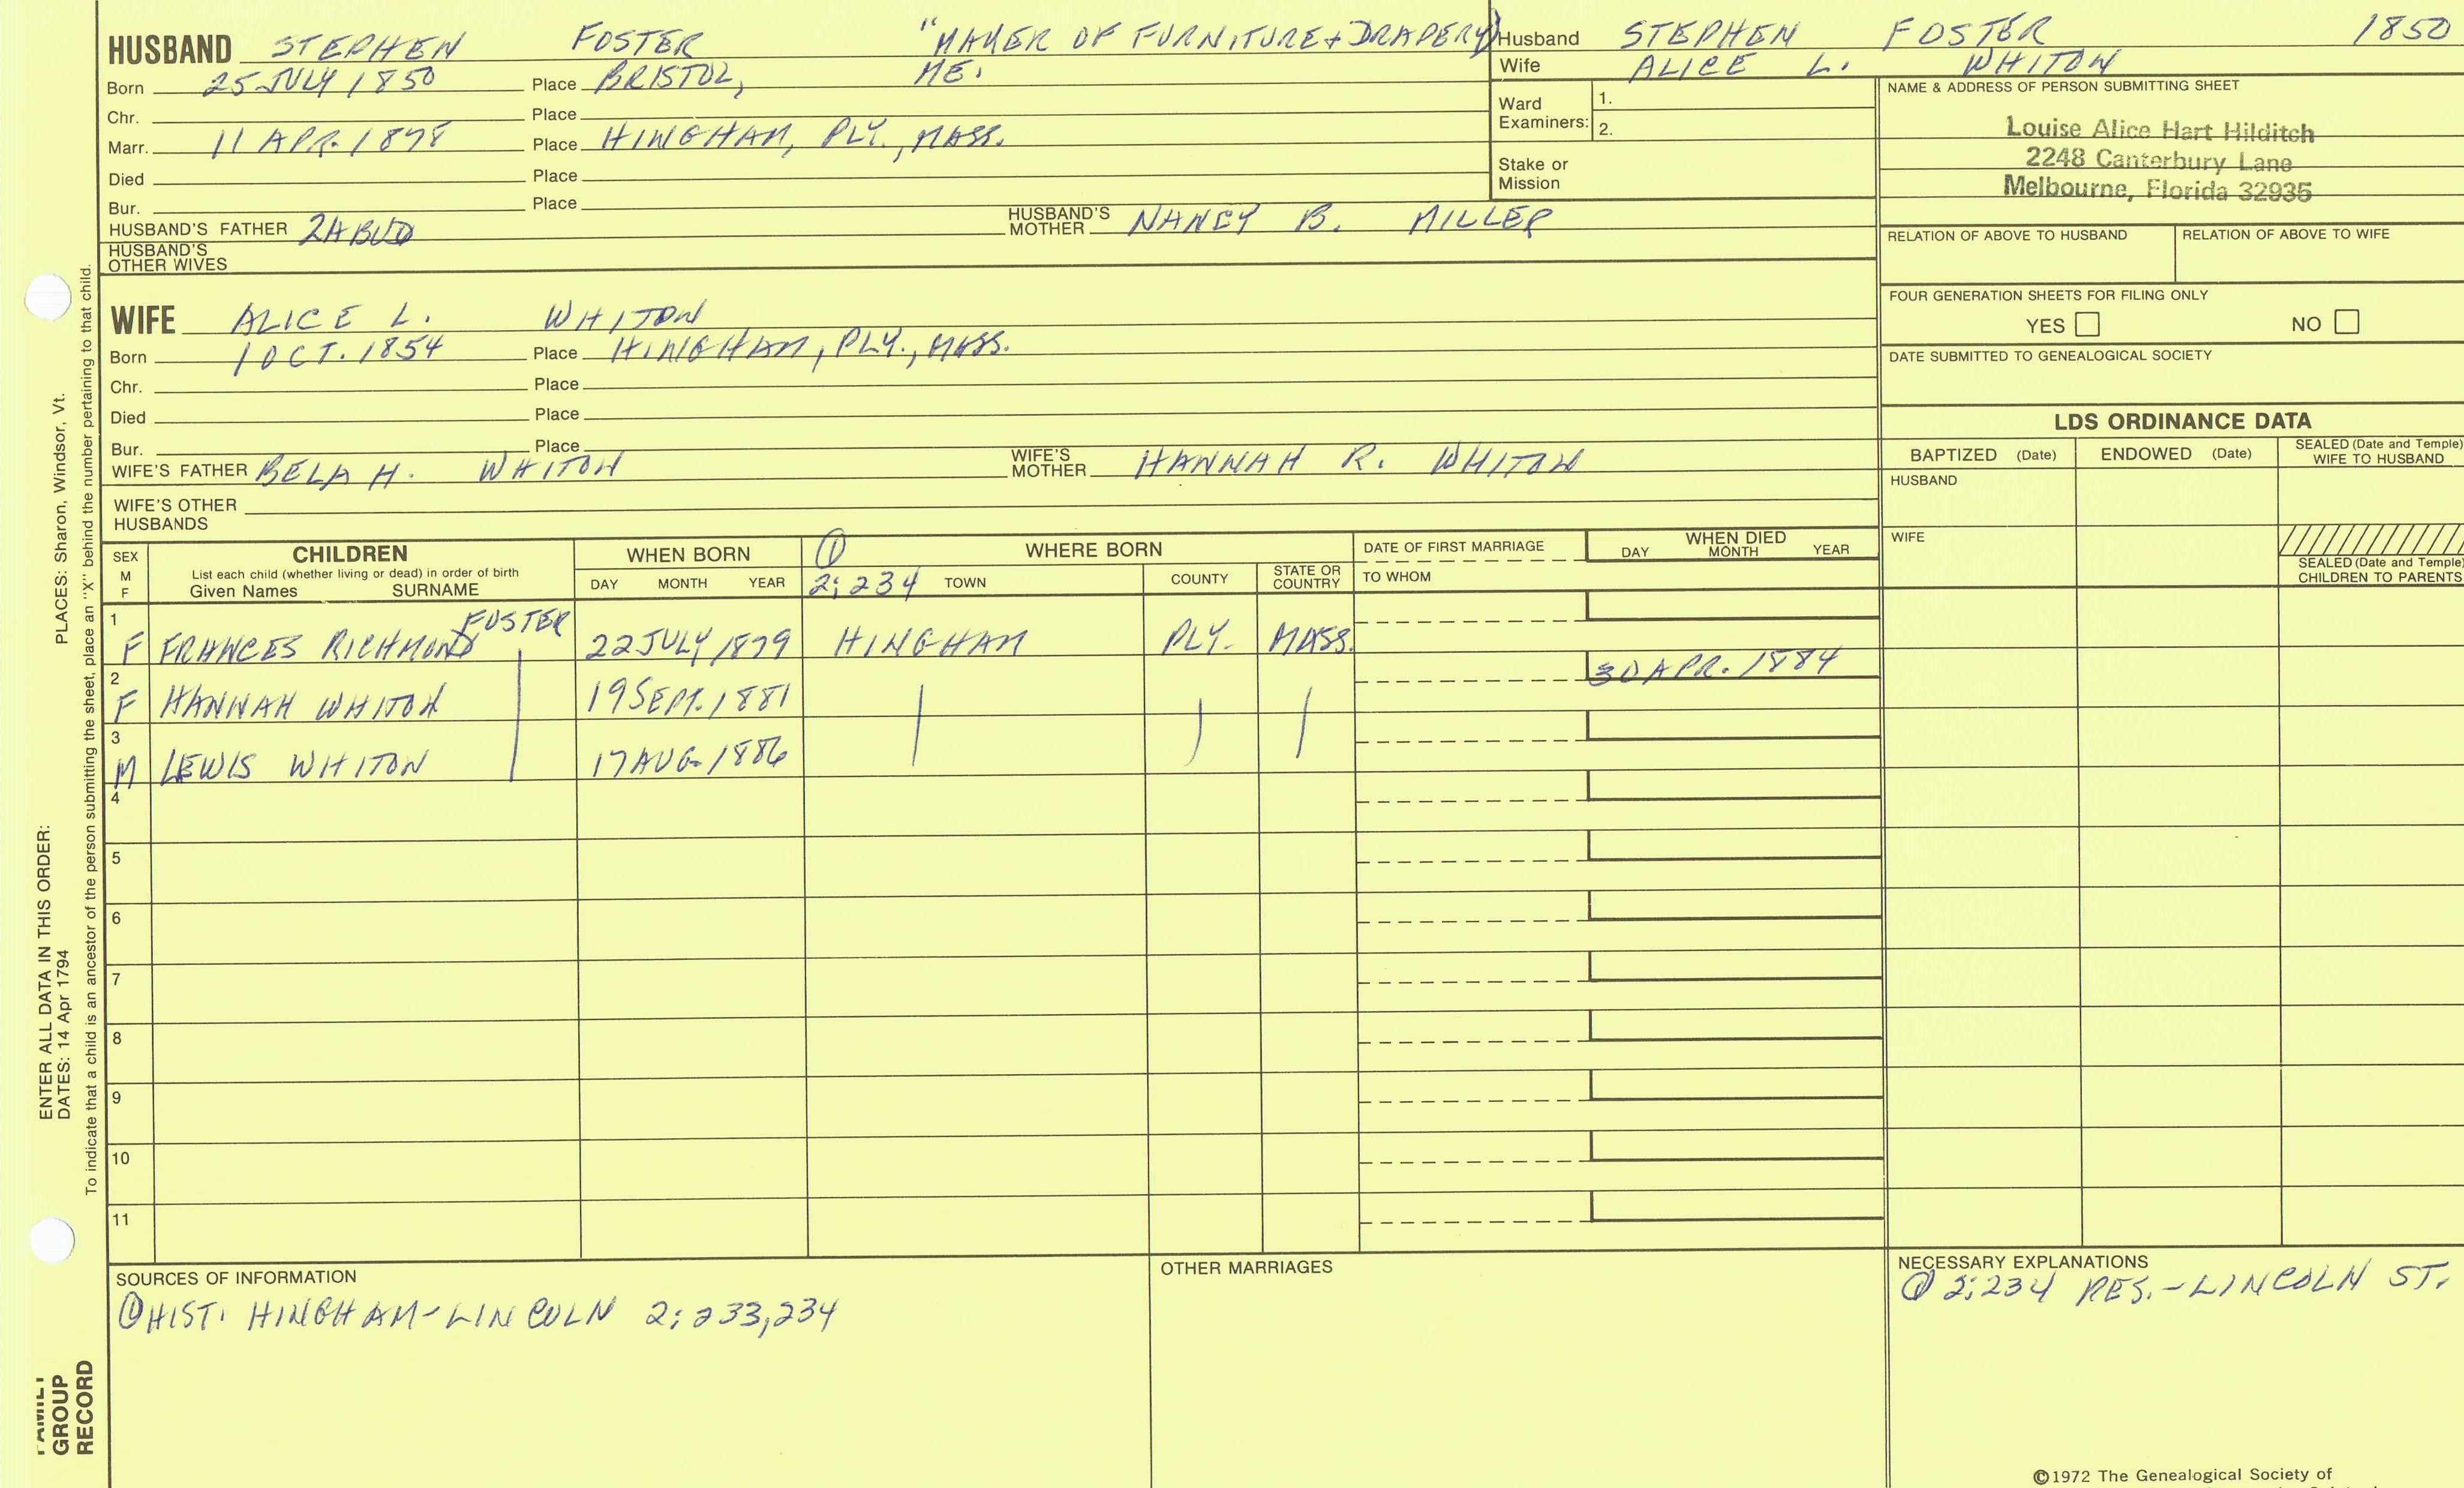 HUSBAND STEPHEN FOSTER "MAKER OF FURNITURE + DRAPERY"
Born 25 JULY 1850 Place BRISTOL, ME.
Chr. Place
Marr. 11 APR. 1878 Place HINGHAM, PLY., MASS.
Died Place
Bur. Place
HUSBAND'S FATHER ZABUD HUSBAND'S MOTHER NANCY B. MILLER
HUSBAND'S OTHER WIVES
Husband STEPHEN FOSTER 1850
Wife ALICE L. WHITON
Ward Examiners: 1.
2.
Stake or Mission
NAME & ADDRESS OF PERSON SUBMITTING SHEET
Louise Alice Hart Hilditch
2248 Canterbury Lane
Melbourne, Florida 32935
RELATION OF ABOVE TO HUSBAND RELATION OF ABOVE TO WIFE
FOUR GENERATION SHEETS FOR FILING ONLY
YES NO
DATE SUBMITTED TO GENEALOGICAL SOCIETY
WIFE ALICE L. WHITON
Born 1 OCT. 1854 Place HINGHAM, PLY., MASS.
Chr. Place
Died Place
Bur. Place
WIFE'S FATHER BELA H. WHITON WIFE'S MOTHER HANNAH R. WHITON
WIFE'S OTHER HUSBANDS
LDS ORDINANCE DATA
BAPTIZED (Date) ENDOWED (Date) SEALED (Date and Temple) WIFE TO HUSBAND
HUSBAND
WIFE
SEALED (Date and Temple) CHILDREN TO PARENTS
SEX M F CHILDREN WHEN BORN ① WHERE BORN DATE OF FIRST MARRIAGE WHEN DIED
List each child (whether living or dead) in order of birth
Given Names SURNAME DAY MONTH YEAR 2:234 TOWN COUNTY STATE OR COUNTRY TO WHOM DAY MONTH YEAR
1 F FRANCES RICHMOND FOSTER 22 JULY 1879 HINGHAM PLY. MASS.
2 F HANNAH WHITON 19 SEPT. 1881 30 APR. 1884
3 M LEWIS WHITON 17 AUG. 1886
4
5
6
7
8
9
10
11
SOURCES OF INFORMATION
① HIST. HINGHAM-LINCOLN 2:233,234
OTHER MARRIAGES
NECESSARY EXPLANATIONS
① 2:234 RES.-LINCOLN ST.
©1972 The Genealogical Society of
PLACES: Sharon, Windsor, Vt.
ENTER ALL DATA IN THIS ORDER:
DATES: 14 Apr 1794
To indicate that a child is an ancestor of the person submitting the sheet, place an "X" behind the number pertaining to that child.
FAMILY
GROUP
RECORD